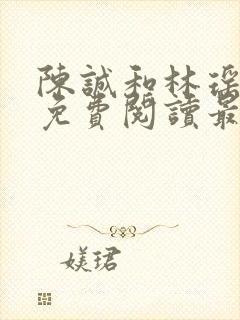 陳誠和林瑤
免費閱讀最
媄珺